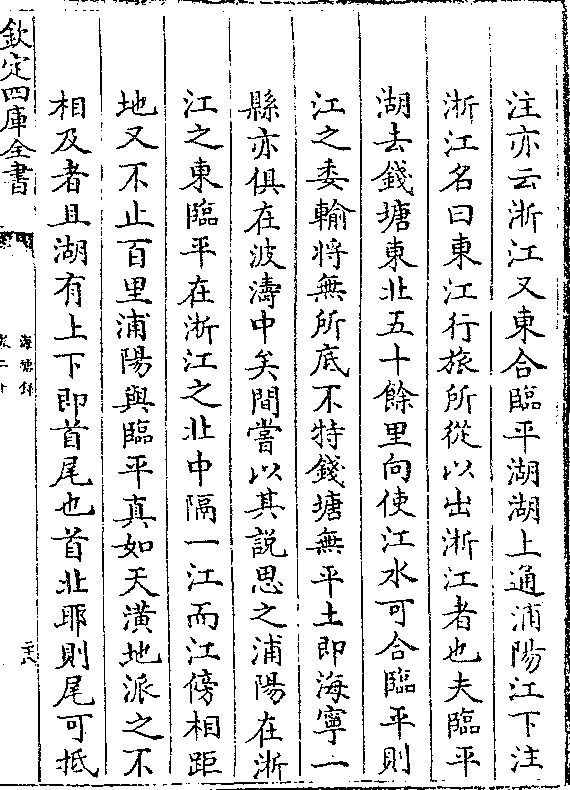 注亦云浙江又東合臨平湖湖上通浦陽江下注
浙江名曰東江行旅所從以出浙江者也夫臨平
湖去錢塘東北五十餘里向使江水可合臨平則
江之委輸將無所底不特錢塘無平土即海寧一
縣亦俱在波濤中矣間嘗以其說思之浦陽在浙
江之東臨平在浙江之北中隔一江而江傍相距
地又不止百里浦陽與臨平真如天潢地派之不
相及者且湖有上下即首尾也首北耶則尾可抵
欽定四庫全書